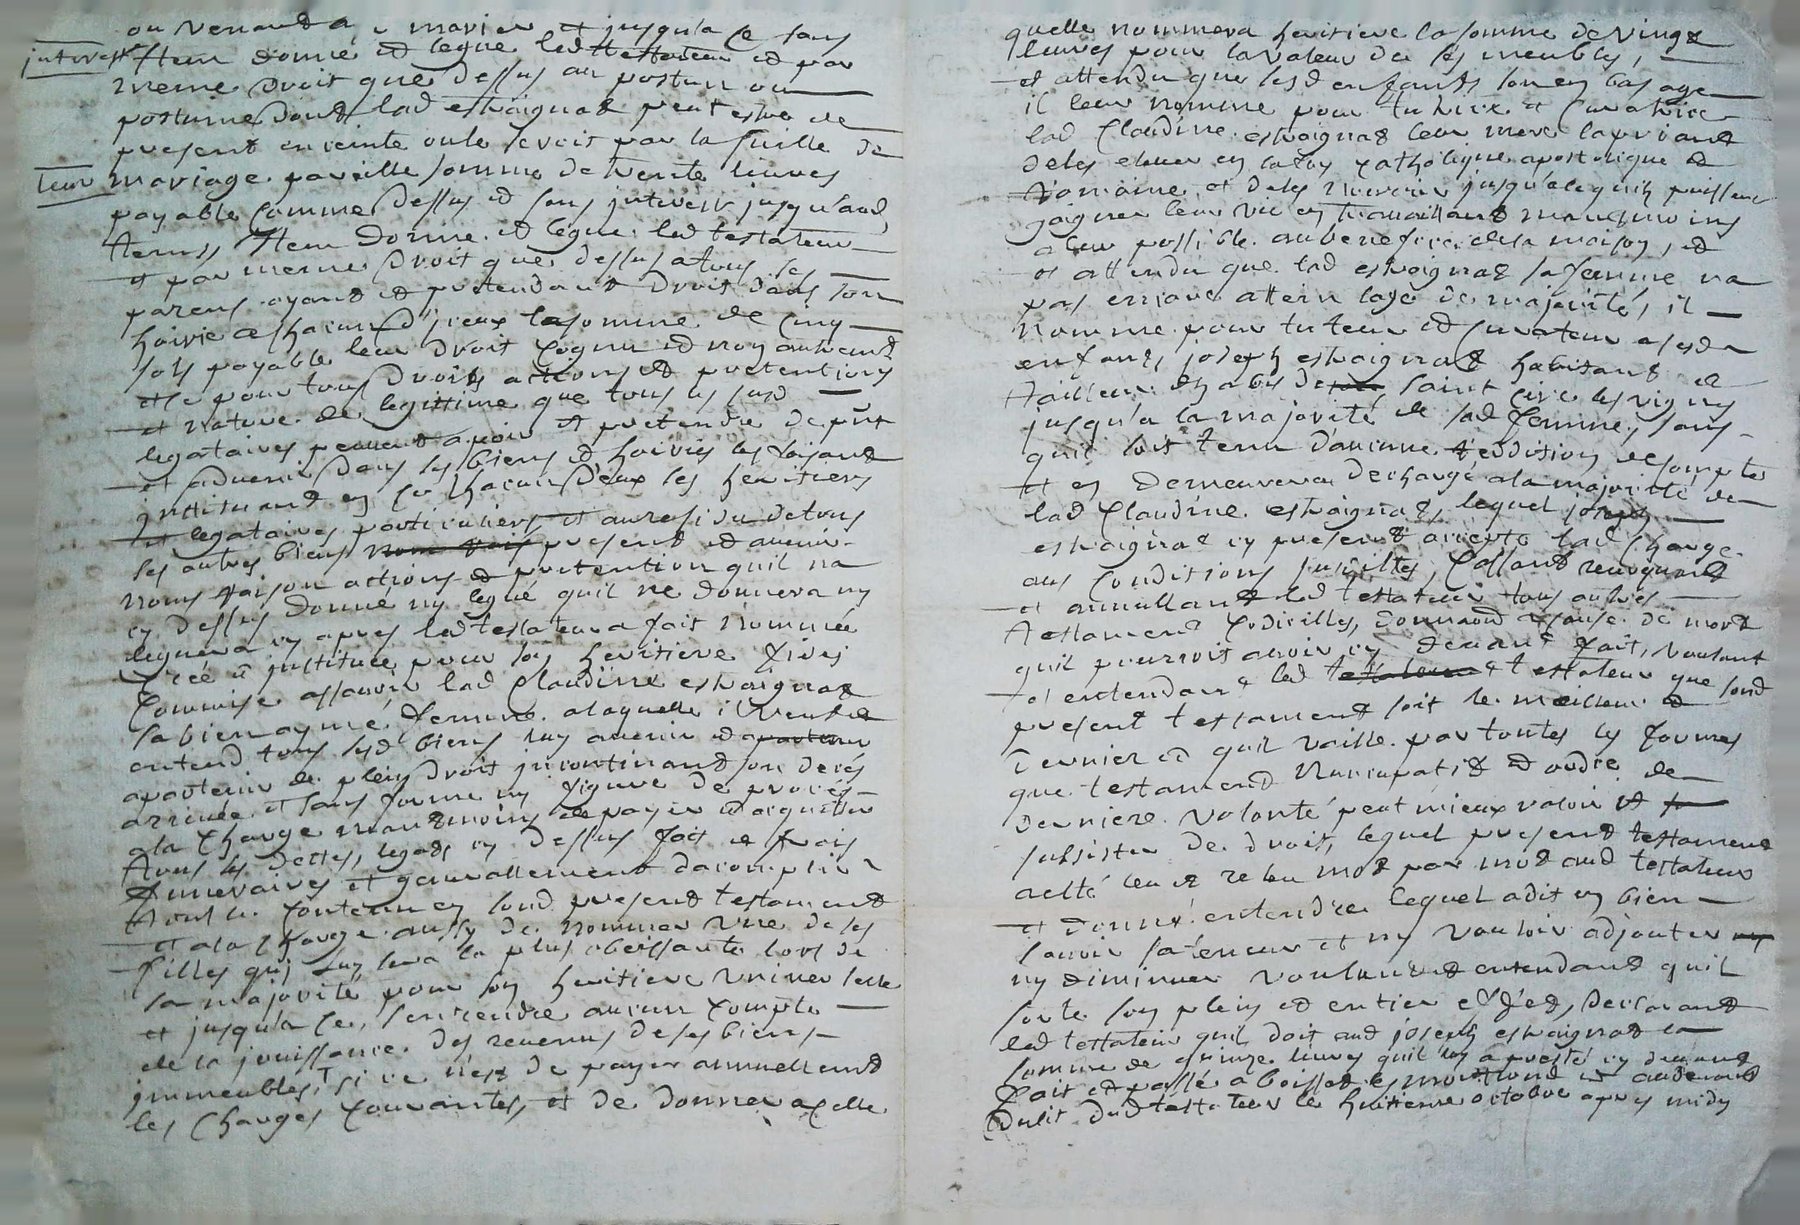 ou venant a se marier et jusqu'a ce sans
interest Item donne et legue led testateur et par
meme droit que dessus au postum ou
postume dont lad estraignat peut estre de
present enceinte ou le seroit par la suitte de
leur mariage pareille somme de trente livres
payable comme dessus et sans interest jusqu'aud
tems, Item donne et legue led testateur
et par meme droit que dessus a tous ses
parens ayant et pretendant droit dans son
hoirie a chacun d'jceux la somme de cinq
sols payable leur droit cognu et non autrement
et ce pour tous droits actions et pretentions
et nature de legitime que tous les susd
legataires peuvent avoir et pretendre de pñt
et advenir dans ses biens et hoiries les faisant
jnstituant en ce chacun d'eux ses heritiers
et legataires particuliers, et au residu de tous
ses autres biens present et avenir
noms raison actions et pretention qu'il na
cy dessus donné ny legué qu'il ne donnera ny
leguera cy apres led testateur a fait nommée
créé et jnstituée pour son heritiere
commise assavoir lad Claudine estraignat
sa bien aymée femme a laquelle il veut et
entend tous sesd biens luy avenir et
apartenir de plein droit jncontinant son decés
arrivée et sans forme ny figure de procés
a la charge neantmoins de payer et acquitter
tous ses dettes, legats cy dessus fait et frais
funeraires et generallement dacomplir
tout le contenu en sond present testament
et a la charge aussy de nommer une de ses
filles qui luy sera la plus obeissante lors de
sa majorité pour son heritiere universelle
et jusqu'a ce, sens rendre aucun compte
de la jouissance des revenus de ses biens
jmmeubles, si ce n'est de payer annuellement
les charges courantes, et de donner a celle
quelle nommera heritiere la somme de vingt
livres pour la valeur de ses meubles,
et attendu que lesd enfants sont en bas age
il leur nomme pour tutrice et curatrice
lad Claudine estraignat leur mere la priant
de les elever en la foy catholique apostolique et
romaine et de les nourrir jusqu'a ce quils puissent
gaigner leur vie en travaillant neantmoins
a leur possible au benefice de la maison, et
et attendu que lad estraignat sa femme na
pas encore attein l'age de majorité, il
nomme pour tuteur et curateur a sesd
enfans, joseph estraignat habitant et
tailleur d'habis de saint Cire les vignes
jusqu'a la majorité de sad femme, sans
quil soit tenu d'aucune reddition de compte
et en demeurera decharge a la majorité de
lad Claudine estraignat, lequel joseph
estraignat cy present accepte lad charge
aux conditions susdittes, Cassant revoquant
et annullant led testateur tous autres
testament codicilles, donnaond a cause de mort
quil pourroit avoir cy devant fait, voulant
et entendant led testateur que sond
present testament soit le meilleur et
dernier et quil vaille par toutes les formes
que testament nuncupatif et ordre de
derniere volonté peut mieux valoir et
subsister de droit, lequel present testament
a esté leu et releu mot par mot aud testateur
et donné entendre lequel a dit en bien
savoir sa teneur et ny vouloir adjouter
ny diminuer voulant et entendant quil
sorte son plein et entier effet, declarant
led testateur quil doit aud joseph estraignat la
somme de quinze livres quil luy a presté cy devant
fait et passé a boisset les montrond et audevant
du lit dud testateur le huitieme octobre apres midy